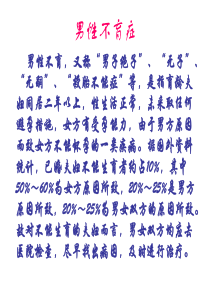 男性不育症
男性不育,又称“男子绝子”、“无子”、
“无嗣”、“被胎不能症”等,是指育龄夫
妇同居二年以上,性生活正常,未采取任何
避孕措施,女方有受孕能力,由于男方原因
而致女方不能怀孕的一类疾病。据国外资料
统计,已婚夫妇不能生育者约占10%,其中
50%~60%为女方原因所致,20%~25%是男方
原因所致,20%~25%为男女双方的原因所致。
故对不能生育的夫妇而言,男女双方均应去
医院检查,尽早找出病因,及时进行治疗。